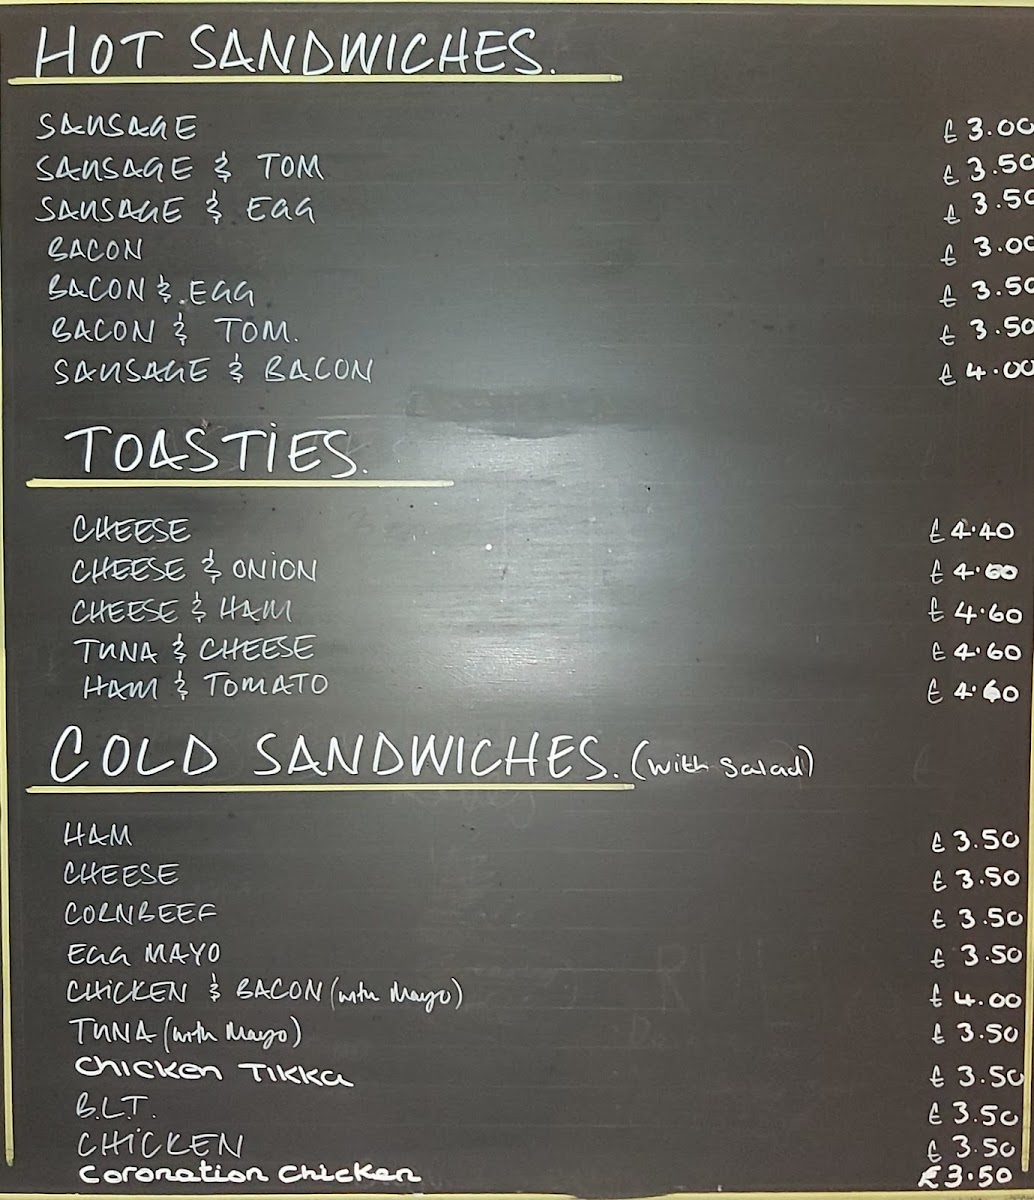 HOT SANDWICHES.
SAUSAGE £3.00
SAUSAGE & TOM £3.50
SAUSAGE & EGG £3.50
BACON £3.00
BACON & EGG £3.50
BACON & TOM. £3.50
SAUSAGE & BACON £4.00
TOASTIES.
CHEESE £4.40
CHEESE & ONION £4.60
CHEESE & HAM £4.60
TUNA & CHEESE £4.60
HAM & TOMATO £4.60
COLD SANDWICHES. (with Salad)
HAM £3.50
CHEESE £3.50
CORNBEEF £3.50
EGG MAYO £3.50
CHICKEN & BACON (with Mayo) £4.00
TUNA (with Mayo) £3.50
Chicken TIKKA £3.50
B.L.T. £3.50
CHICKEN £3.50
Coronation Chicken £3.50